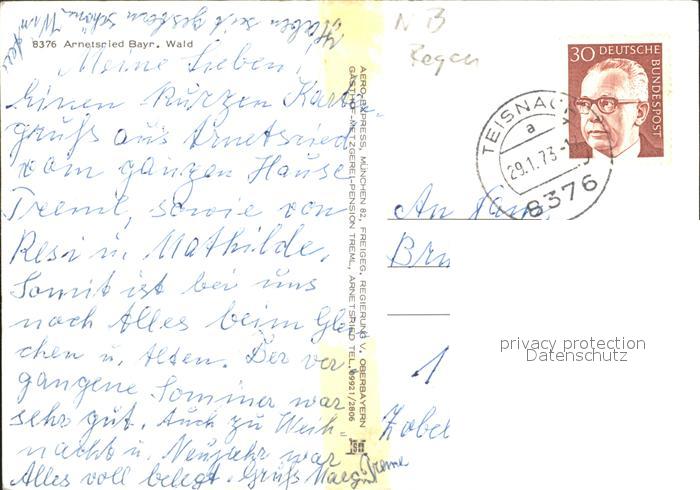 Haben seit gestern schöne Win
ter
8376 Arnetsried Bayr. Wald
Meine Lieben!
Einen kurzen Karten
gruß aus Arnetsried
vom ganzen Hause
Treml, sowie von
Resi u. Mathilde.
Somit ist bei uns
noch Alles beim Glei
chen u. Alten. Der ver
gangene Sommer war
sehr gut. Auch zu Weih-
nacht u. Neujahr war
Alles voll belegt. Gruß
AERO-EXPRESS, MÜNCHEN 82, FREIGEG. REGIERUNG V. OBERBAYERN
GASTHOF-METZGEREI-PENSION TREML, ARNETSRIED TEL. 09921/2806
NB
Regen
30 DEUTSCHE
BUNDESPOST
TEISNACH
a
29.1.73-1
8376
An Fam.
Bru
1
Zobel
privacy protection
Datenschutz